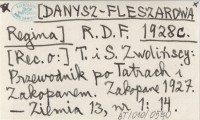 [DANYSZ-FLESZAROWA
Regina] R.D.F. 1928c.
[Rec. o:] T. i S. Zwolińscy:
Przewodnik po Tatrach i
Zakopanem. Zakopane 1927.
— Ziemia 13, nr 1: 14.
AT/010/0590